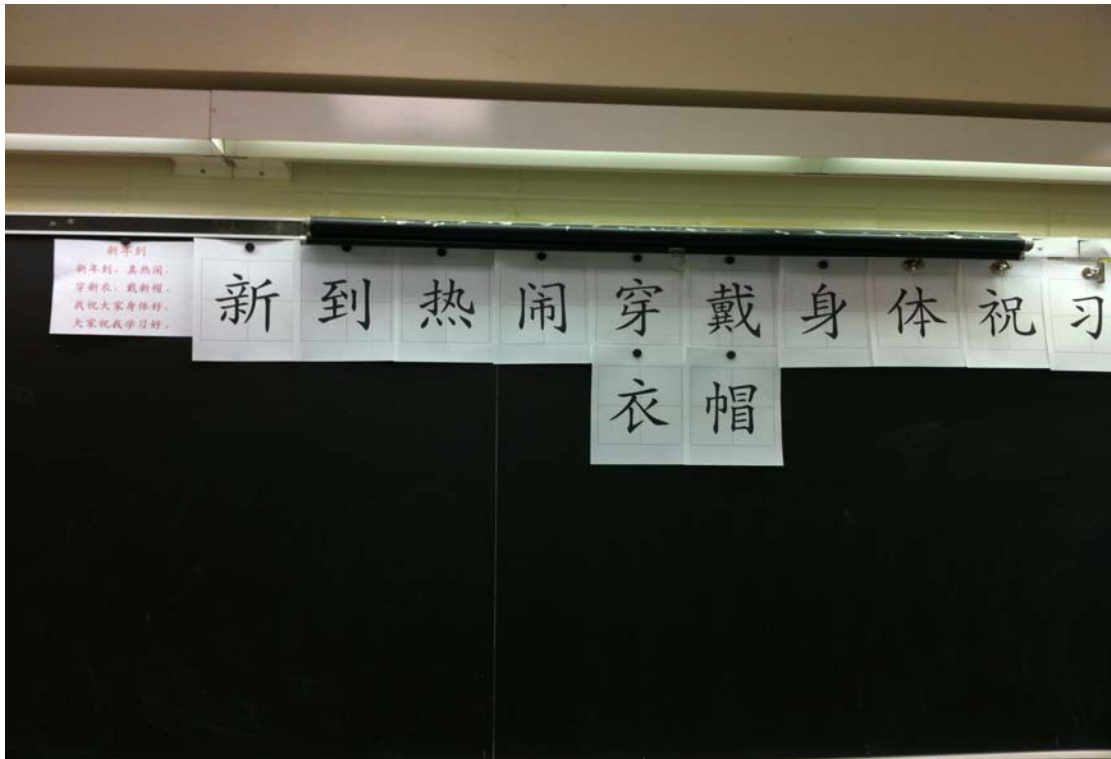 新年到
新年到，真热闹。
穿新衣，戴新帽。
我祝大家身体好，
大家祝我学习好。
新 到 热 闹 穿 戴 身 体 祝 习
衣 帽